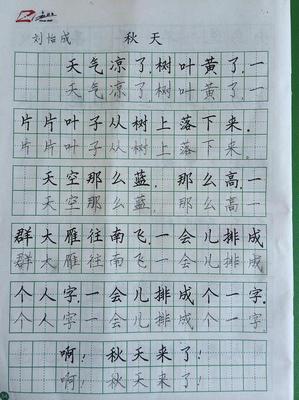 刘怡成 秋天
天气凉了,树叶黄了,一
天气凉了,树叶黄了,一
片片叶子从树上落下来。
片片叶子从树上落下来。
天空那么蓝,那么高一
天空那么蓝,那么高一
群大雁往南飞,一会儿排成
群大雁往南飞,一会儿排成
个人字,一会儿排成个一字。
个人字,一会儿排成个一字。
啊!秋天来了!
啊!秋天来了!